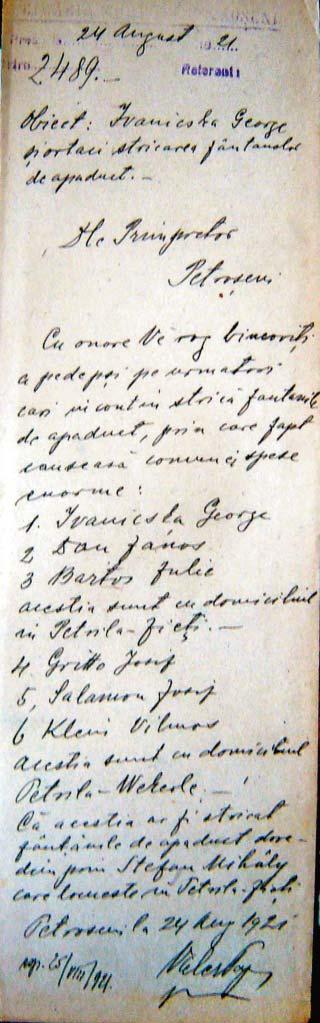 24 August 21.
2489.-
Referent:
Obiect: Ivanicska George
și ortaci stricarea fântânelor
de apaduct.-
Dle Primpretor
Petroșeni
Cu onore Vĕ rog binevoiți
a pedepsi pe urmatori
cari in contin strică fantanile
de apaduct, prin care fapt
causeasă comunei spese
enorme:
1. Ivanicska George
2 Dan János
3 Bartos Julie
acestia sunt cu domiciliul
in Petrila-
4. Gritto Josif
5, Salamon Josif
6 Klein Vilmos
acestia sunt cu domiciliul
Petrila-Wekerle.-
Că acestia ar fi stricat
fântânile de apaduct dove-
din prin Stefan Mihály
care locueste in Petrila-
24 Aug 1921
exp. 25/VIII/921.